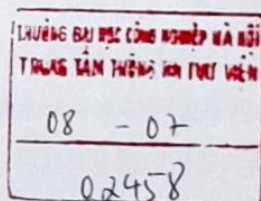 TRƯỜNG ĐẠI HỌC CÔNG NGHIỆP HÀ NỘI
TRUNG TÂM THÔNG TIN THƯ VIỆN
08 - 07
02458